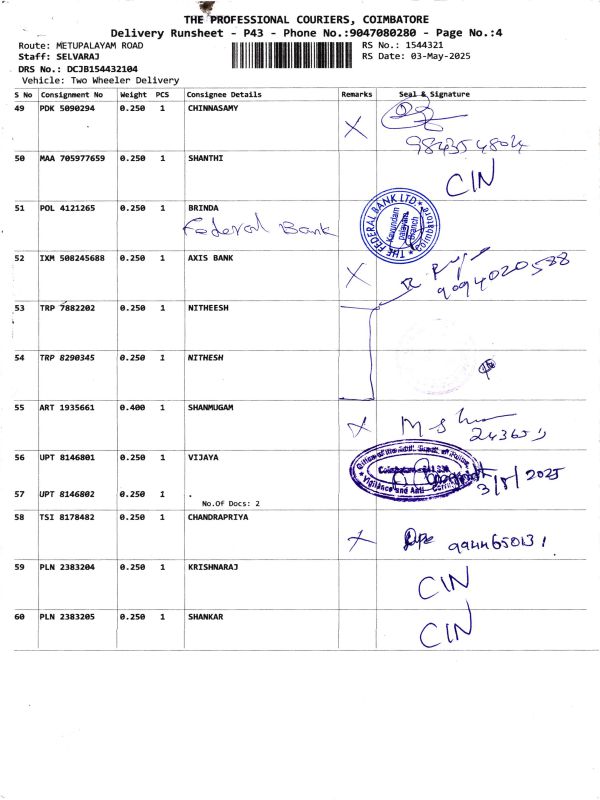 THE PROFESSIONAL COURIERS, COIMBATORE
Delivery Runsheet - P43 - Phone No.:9047080280 - Page No.:4
Route: METUPALAYAM ROAD
RS No.: 1544321
Staff: SELVARAJ
RS Date: 03-May-2025
DRS No.: DCJB154432104
Vehicle: Two Wheeler Delivery
S No Consignment No Weight PCS Consignee Details Remarks Seal & Signature
49 PDK 5090294 0.250 1 CHINNASAMY X
9843548024
50 MAA 705977659 0.250 1 SHANTHI
CIN
51 POL 4121265 0.250 1 BRINDA
Federal Bank
THE FEDERAL BANK LTD. Coimbatore
Branch
52 IXM 508245688 0.250 1 AXIS BANK X
9094020588
53 TRP 7882202 0.250 1 NITHEESH
54 TRP 8290345 0.250 1 NITHESH
55 ART 1935661 0.400 1 SHANMUGAM X
56 UPT 8146801 0.250 1 VIJAYA
Vigilance and Anti
3/5/2025
57 UPT 8146802 0.250 1 .
No.Of Docs: 2
58 TSI 8178482 0.250 1 CHANDRAPRIYA X
9944650131
59 PLN 2383204 0.250 1 KRISHNARAJ CIN
60 PLN 2383205 0.250 1 SHANKAR CIN